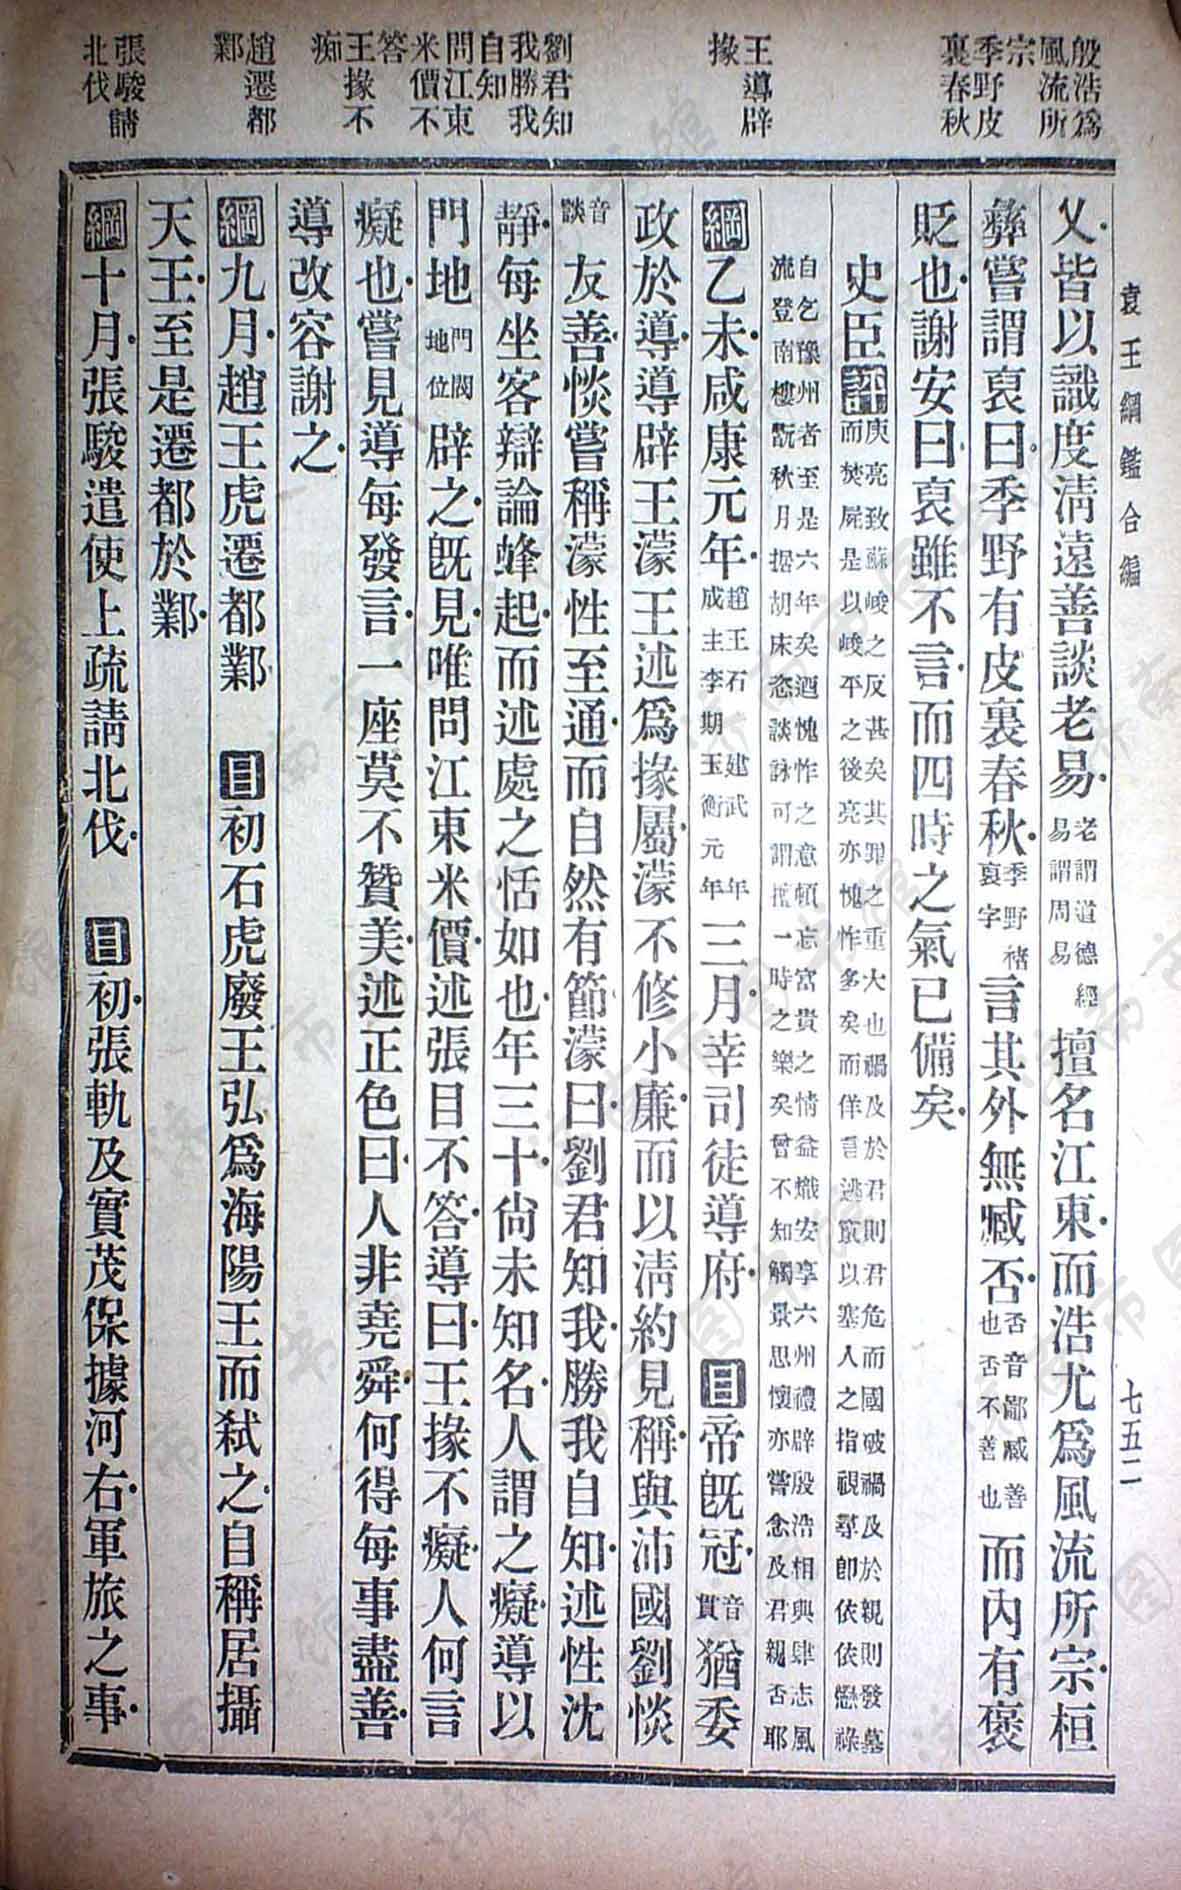 殷浩爲
風流所
宗
季野皮
裏春秋
王導辟
掾
劉君知
我勝我
自知
問江東
米價不
答
王掾不
痴
趙遷都
鄴
張駿請
北伐
袁王綱鑑合編
七五二
乂皆以識度淸遠善談老易老謂道德經易謂周易擅名江東而浩尤爲風流所宗桓
彝嘗謂裒曰季野有皮裏春秋季野褚裒字言其外無臧否否音鄙臧善也否不善也而內有褒
貶也謝安曰裒雖不言而四時之氣已備矣
史臣評庾亮致蘇峻之反甚矣其罪之重大也禍及於君則君危而國破禍及於親則發墓
而焚屍是以峻平之後亮亦愧怍多矣而佯言逃竄以塞人之指視尋卽依依戀祿
自乞豫州者至是六年矣迺愧怍之意頓忘富貴之情益熾安享六州禮辟殷浩相與肆志風
流登南樓翫秋月据胡床恣談詠可謂擅一時之樂矣曾不知觸景思懷亦嘗念及君親否耶
綱乙未咸康元年趙王石虎建武元年成主李期玉衡元年三月幸司徒導府 目帝旣冠音貫猶委
政於導導辟王濛王述爲掾屬濛不修小廉而以淸約見稱與沛國劉惔
音談友善惔嘗稱濛性至通而自然有節濛曰劉君知我勝我自知述性沈
靜每坐客辯論蜂起而述處之恬如也年三十尙未知名人謂之癡導以
門地門閥地位辟之旣見唯問江東米價述張目不答導曰王掾不癡人何言
癡也嘗見導每發言一座莫不贊美述正色曰人非堯舜何得每事盡善
導改容謝之
綱九月趙王虎遷都鄴 目初石虎廢王弘爲海陽王而弒之自稱居攝
天王至是遷都於鄴
綱十月張駿遣使上疏請北伐 目初張軌及實茂保據河右軍旅之事